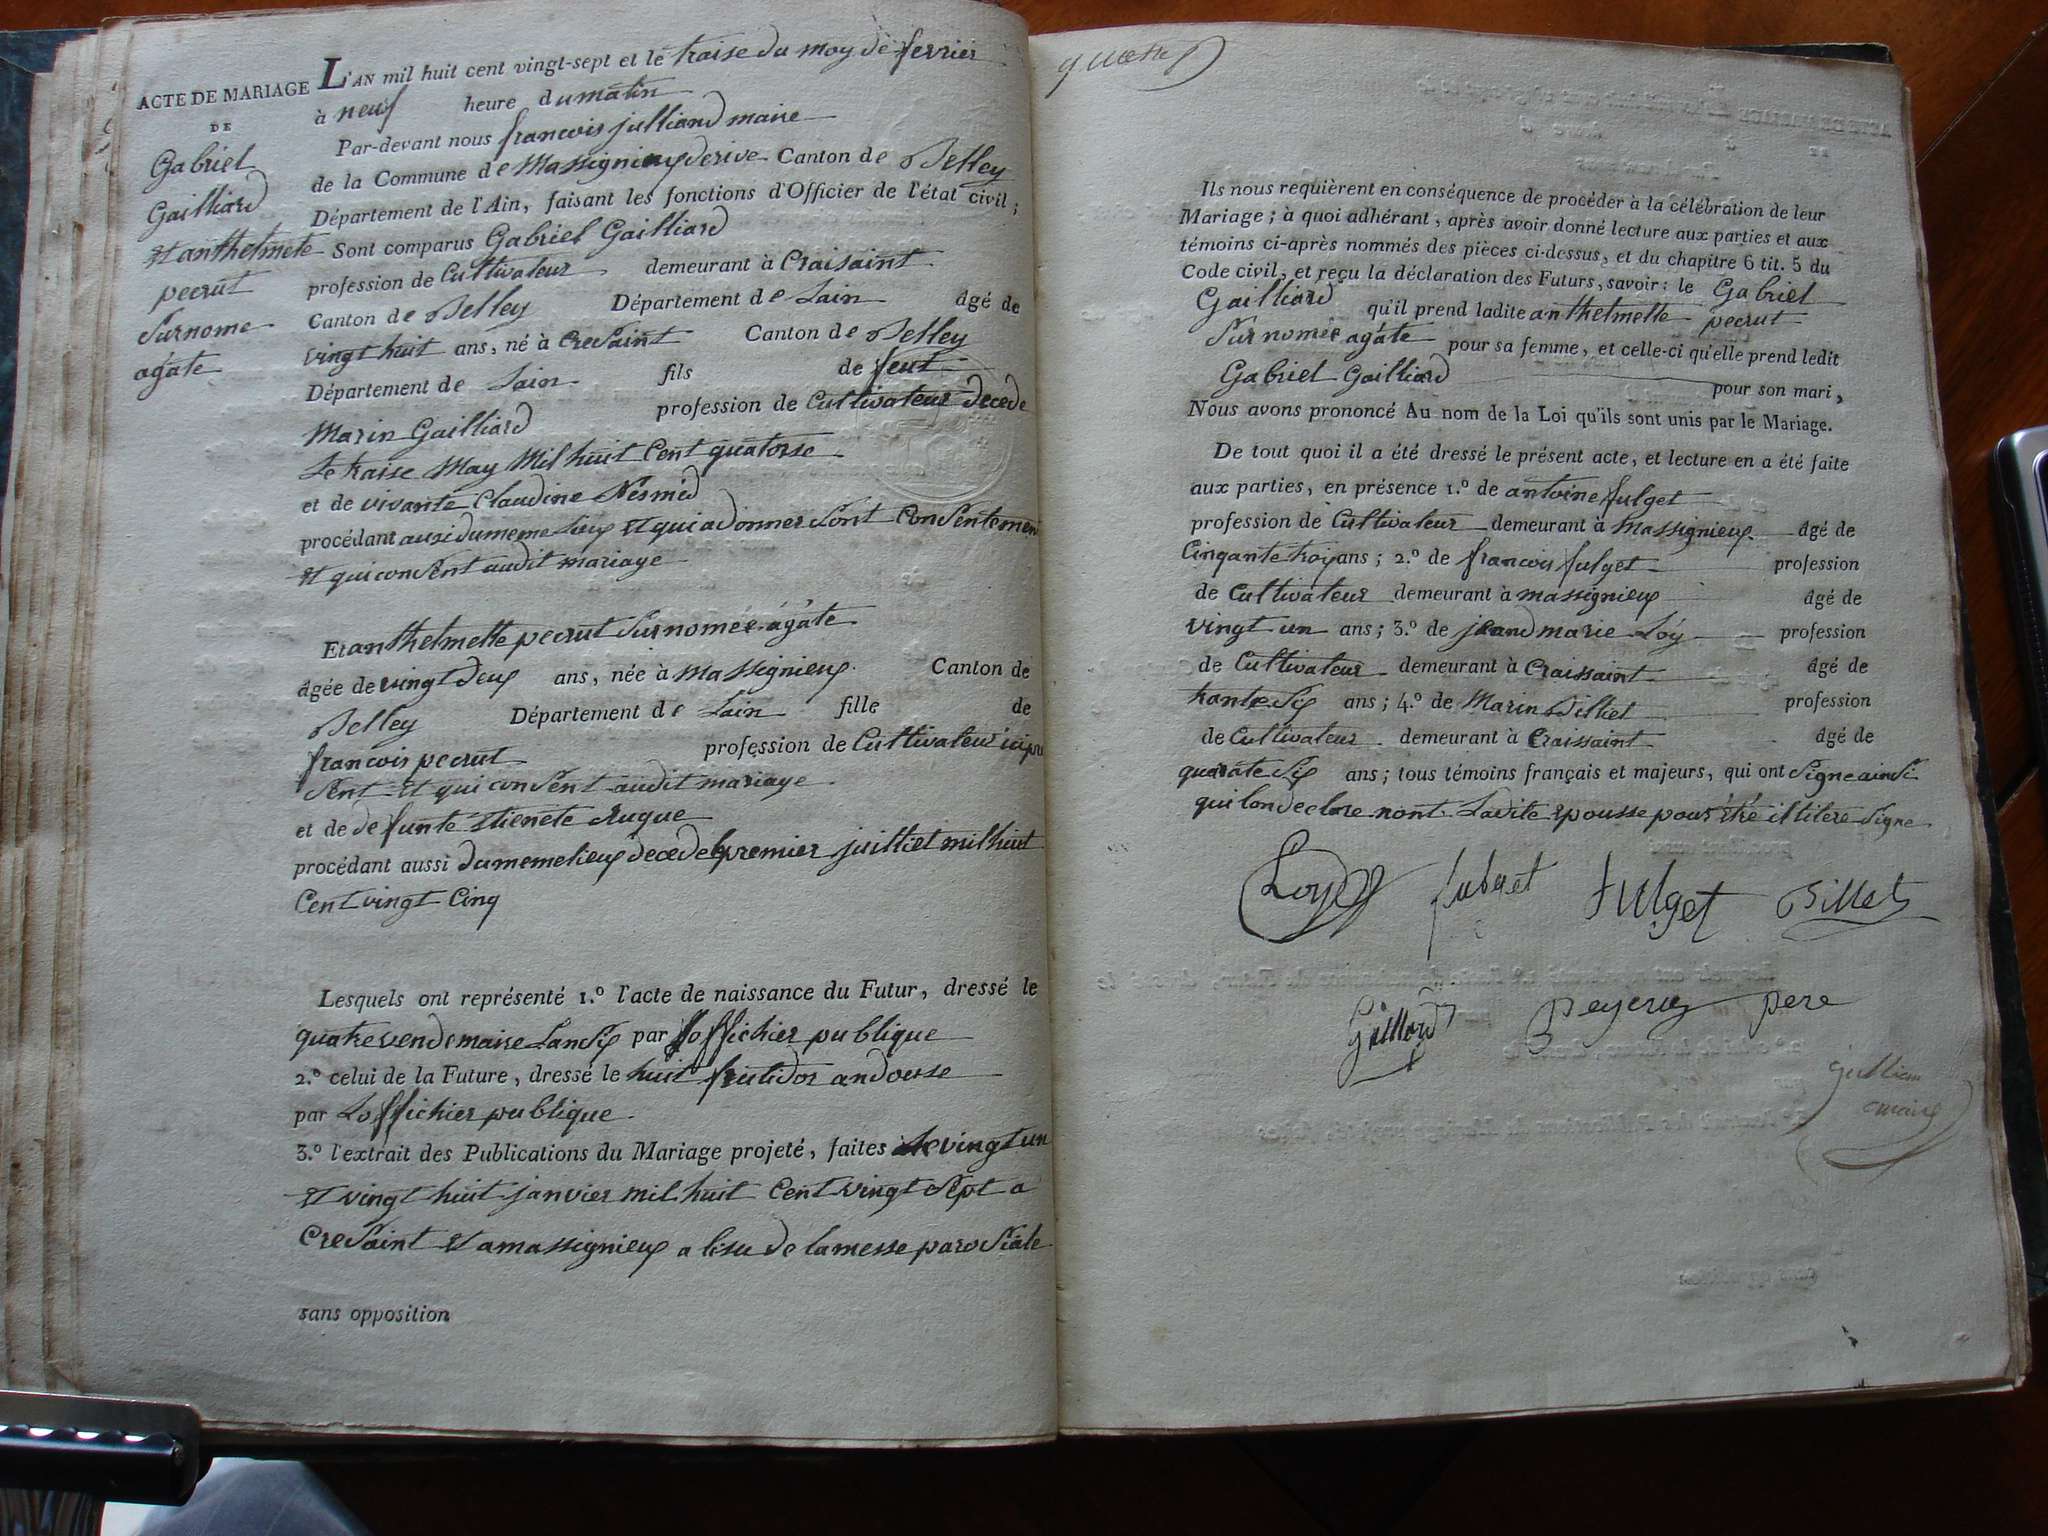 ACTE DE MARIAGE
DE
Gabriel
Gailliard
et anthelmete
pecrut
Surnome
agate
L'AN mil huit cent vingt-sept et le traise du moy de fevrier
à neuf heure du matin
Par-devant nous francois julliand maire
de la Commune de Massignieu de rive Canton de Belley
Département de l'Ain, faisant les fonctions d'Officier de l'état civil ;
Sont comparus Gabriel Gailliard
profession de Cultivateur demeurant à Craisaint
Canton de Belley Département de Lain âgé de
vingt huit ans, né à CreSaint Canton de Belley
Département de Lain fils de feut
Marin Gailliard profession de Cultivateur decede
Le traise May Mil huit Cent quatorse
et de vivante Claudine Nésmed
procédant ausi du meme Lieu et qui a donner Sont Consentemen
et qui conSent audit mariage
Et anthelmette pecrut Surnomée agate
âgée de vingt deux ans, née à Massignieu Canton de
Belley Département de Lain fille de
francois pecrut profession de Cultivateur ici pre
Sent et qui conSent audit mariage
et de defunte Etienete
procédant aussi du meme lieu decede le premier juilliet mil huit
Cent vingt Cinq
Lesquels ont représenté 1.° l'acte de naissance du Futur, dressé le
quatre vendemaire Lan Six par Loffichier publique
2.° celui de la Future, dressé le huit frutidor an douse
par Loffichier publique
3.° l'extrait des Publications du Mariage projeté, faites Le vingt un
et vingt huit janvier mil huit Cent vingt Sept a
CreSaint et a massignieu a lisu de la messe paroSiale
sans opposition
Ils nous requièrent en conséquence de procéder à la célébration de leur
Mariage ; à quoi adhérant, après avoir donné lecture aux parties et aux
témoins ci-après nommés des pièces ci-dessus, et du chapitre 6 tit. 5 du
Code civil, et reçu la déclaration des Futurs, savoir : le Gabriel
Gailliard qu'il prend ladite anthelmette pecrut
Surnomée agate pour sa femme, et celle-ci qu'elle prend ledit
Gabriel Gailliard pour son mari,
Nous avons prononcé Au nom de la Loi qu'ils sont unis par le Mariage.
De tout quoi il a été dressé le présent acte, et lecture en a été faite
aux parties, en présence 1.° de antoine fulget
profession de Cultivateur demeurant à Massignieu âgé de
Cinqante troy ans ; 2.° de francois fulget profession
de Cultivateur demeurant à massignieu âgé de
vingt un ans ; 3.° de jeand marie Loy profession
de Cultivateur demeurant à Craissaint âgé de
trante Six ans ; 4.° de Marin Billiet profession
de Cultivateur demeurant à Craissaint âgé de
quarate Six ans ; tous témoins français et majeurs, qui ont Signe ainSi
qui lon declare nont Ladite epousse pour etre illitere Signe
Loy fulget fulget Billet
Gaillard pere
maire